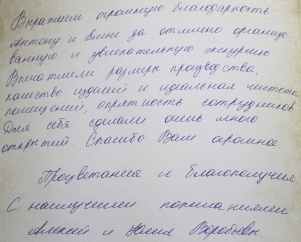 Выражаем огромную благодарность
Антону и Элине за отлично организо
ванную и увлекательную экскурсию
Впечатлили размеры производства,
качество изделий и идеальная чистота
помещений, опрятность сотрудников.
Для себя сделали очень много
открытий. Спасибо Вам огромное.
Процветания и благополучия.
С наилучшими пожеланиями
Алексей и Юлия